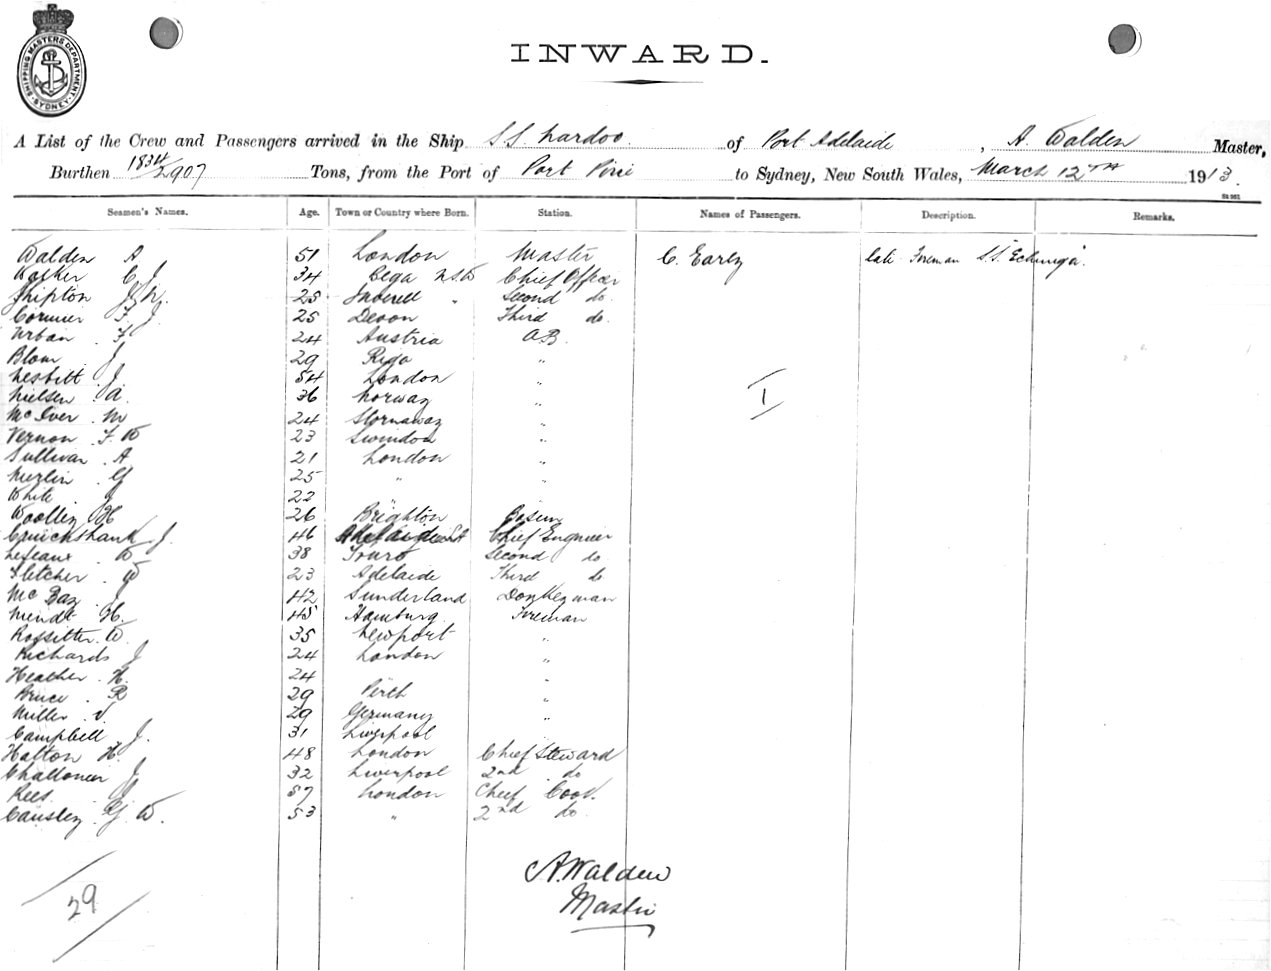 SHIPPING MASTERS DEPARTMENT
SYDNEY
INWARD.
A List of the Crew and Passengers arrived in the Ship S.S. Nardoo of Port Adelaide, A. Walden Master,
Burthen 1834/2907 Tons, from the Port of Port Pirie to Sydney, New South Wales, March 12TH 1913.
Seamen's Names. Age. Town or Country where Born. Station. Names of Passengers. Description. Remarks.
Walden A 51 London Master C. Early late Fireman S.S. Echunga
Walker C J 34 Bega N.S.W Chief Officer
Shipton J W. 25 Inverell " Second do
Cormer F. J 25 Devon Third do.
Urban F 24 Austria A.B.
Blom J 29 Riga "
Nesbitt J 54 London "
Nielsen A. 36 Norway "
McIver M 24 Stornaway "
Vernon F. W 23 Swindon "
Sullivan A 21 London "
Merlin G 25 " "
White J 22 " "
Woolley H 26 Brighton Bosun
Cruickshank J. 46 Adelaide Chief Engineer
Leseaux W 38 Truro Second do
Fletcher W 23 Adelaide Third do
McBay J 42 Sunderland Donkeyman
Mendt H. 45 Hamburg Fireman
Rossitter W. 35 Newport "
Richards J 24 London "
Heather H. 24 "
Bruce R 29 Perth "
Miller V. 29 Germany "
Campbell J. 31 Liverpool
Halton H. 48 London Chief Steward
Challoner J 32 Liverpool 2nd do
Rees J 57 London Chief Cook.
Causley G W. 53 " 2nd do
I
A. Walden
Master
29